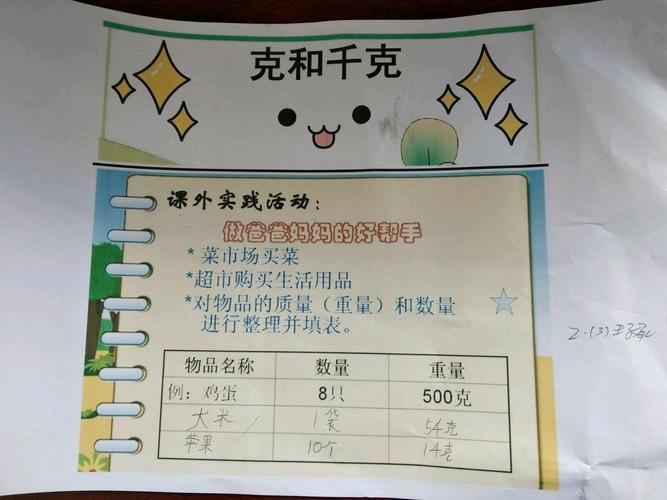 克和千克
课外实践活动：
做爸爸妈妈的好帮手
*菜市场买菜
*超市购买生活用品
*对物品的质量（重量）和数量
进行整理并填表。
物品名称 数量 重量
例：鸡蛋 8只 500克
大米 1袋 54克
苹果 10个 14克
2-(3)